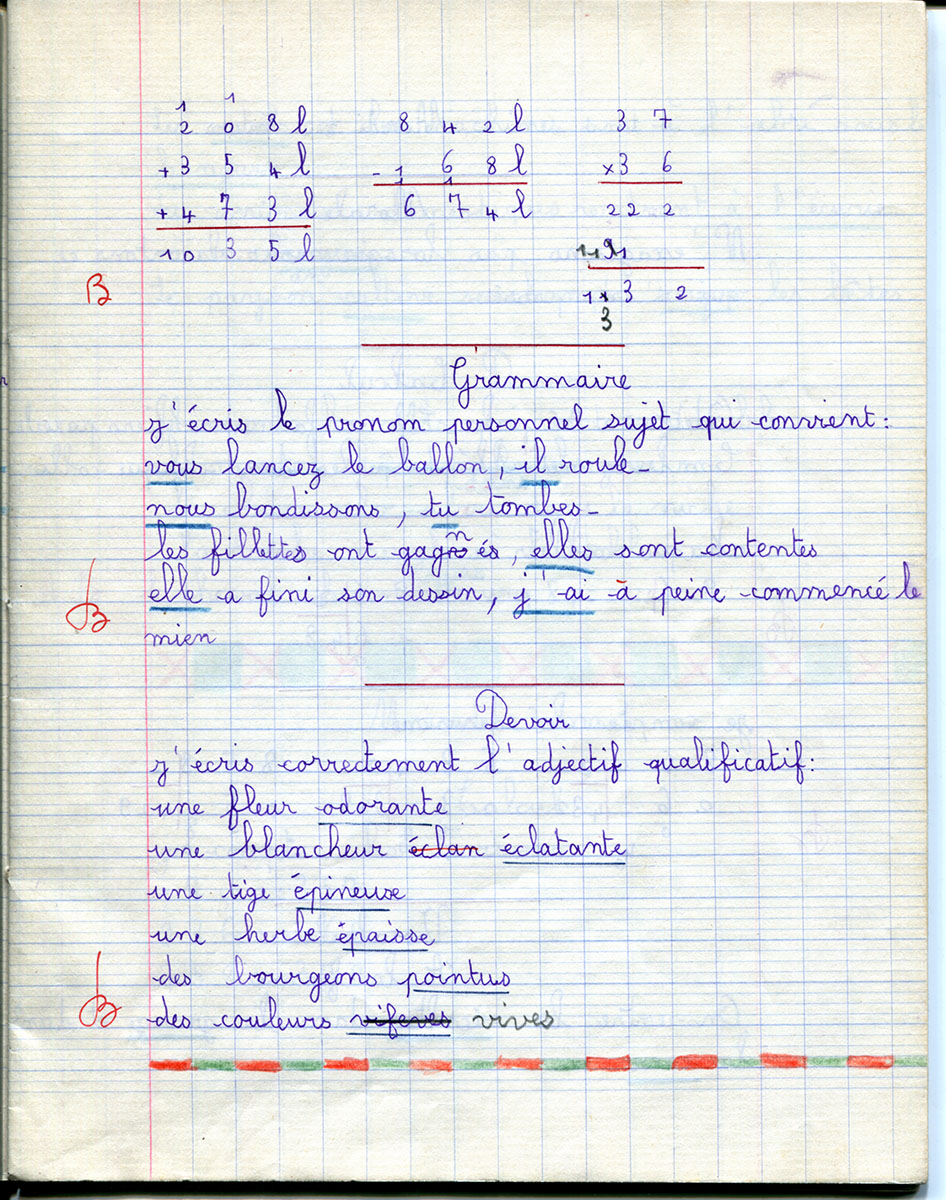 1 1
2 0 8 l   8 4 2 l   3 7
+ 3 5 4 l   - 1 6 8 l   x 3 6
+ 4 7 3 l   6 7 4 l   2 2 2
1 0 3 5 l
1 3 3 2
B
Grammaire
j'écris le pronom personnel sujet qui convient :
vous lancez le ballon, il roule_
nous bondissons, tu tombes_
les fillettes ont gagnés, elles sont contentes
elle a fini son dessin, j'ai à peine commencé le
B
mien
Devoir
j'écris correctement l'adjectif qualificatif :
une fleur odorante
une blancheur éclan éclatante
une tige épineuse
une herbe épaisse
des bourgeons pointus
B
des couleurs vifeves vives